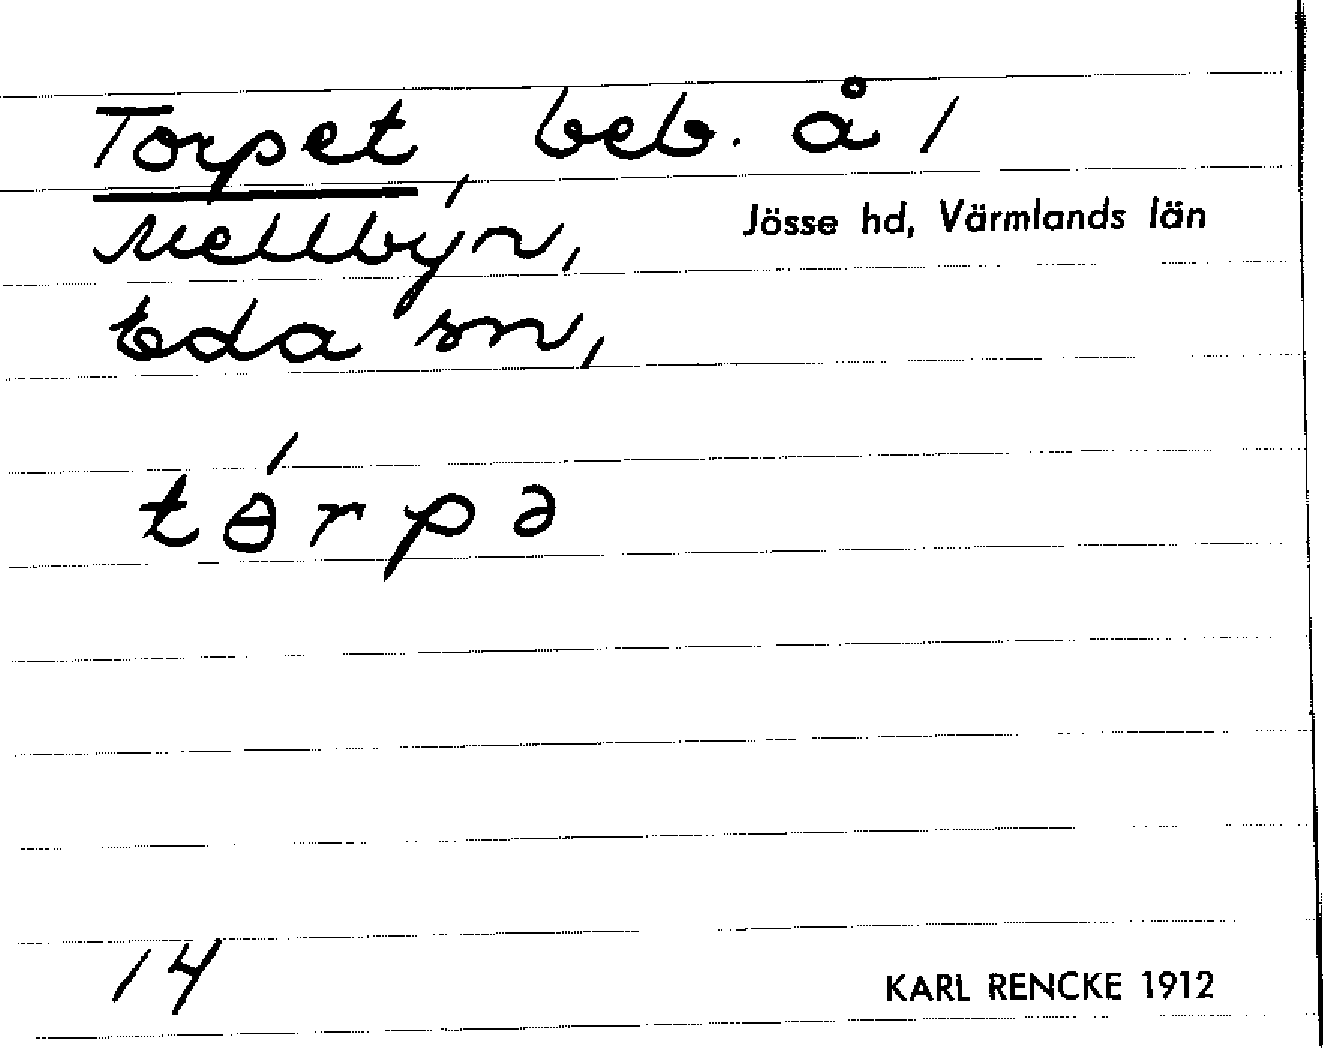 Torpet, beb. å 1
Mellbyn,
Jösse hd, Värmlands län
Eda sn,
tɵ́rpə
14
KARL RENCKE 1912